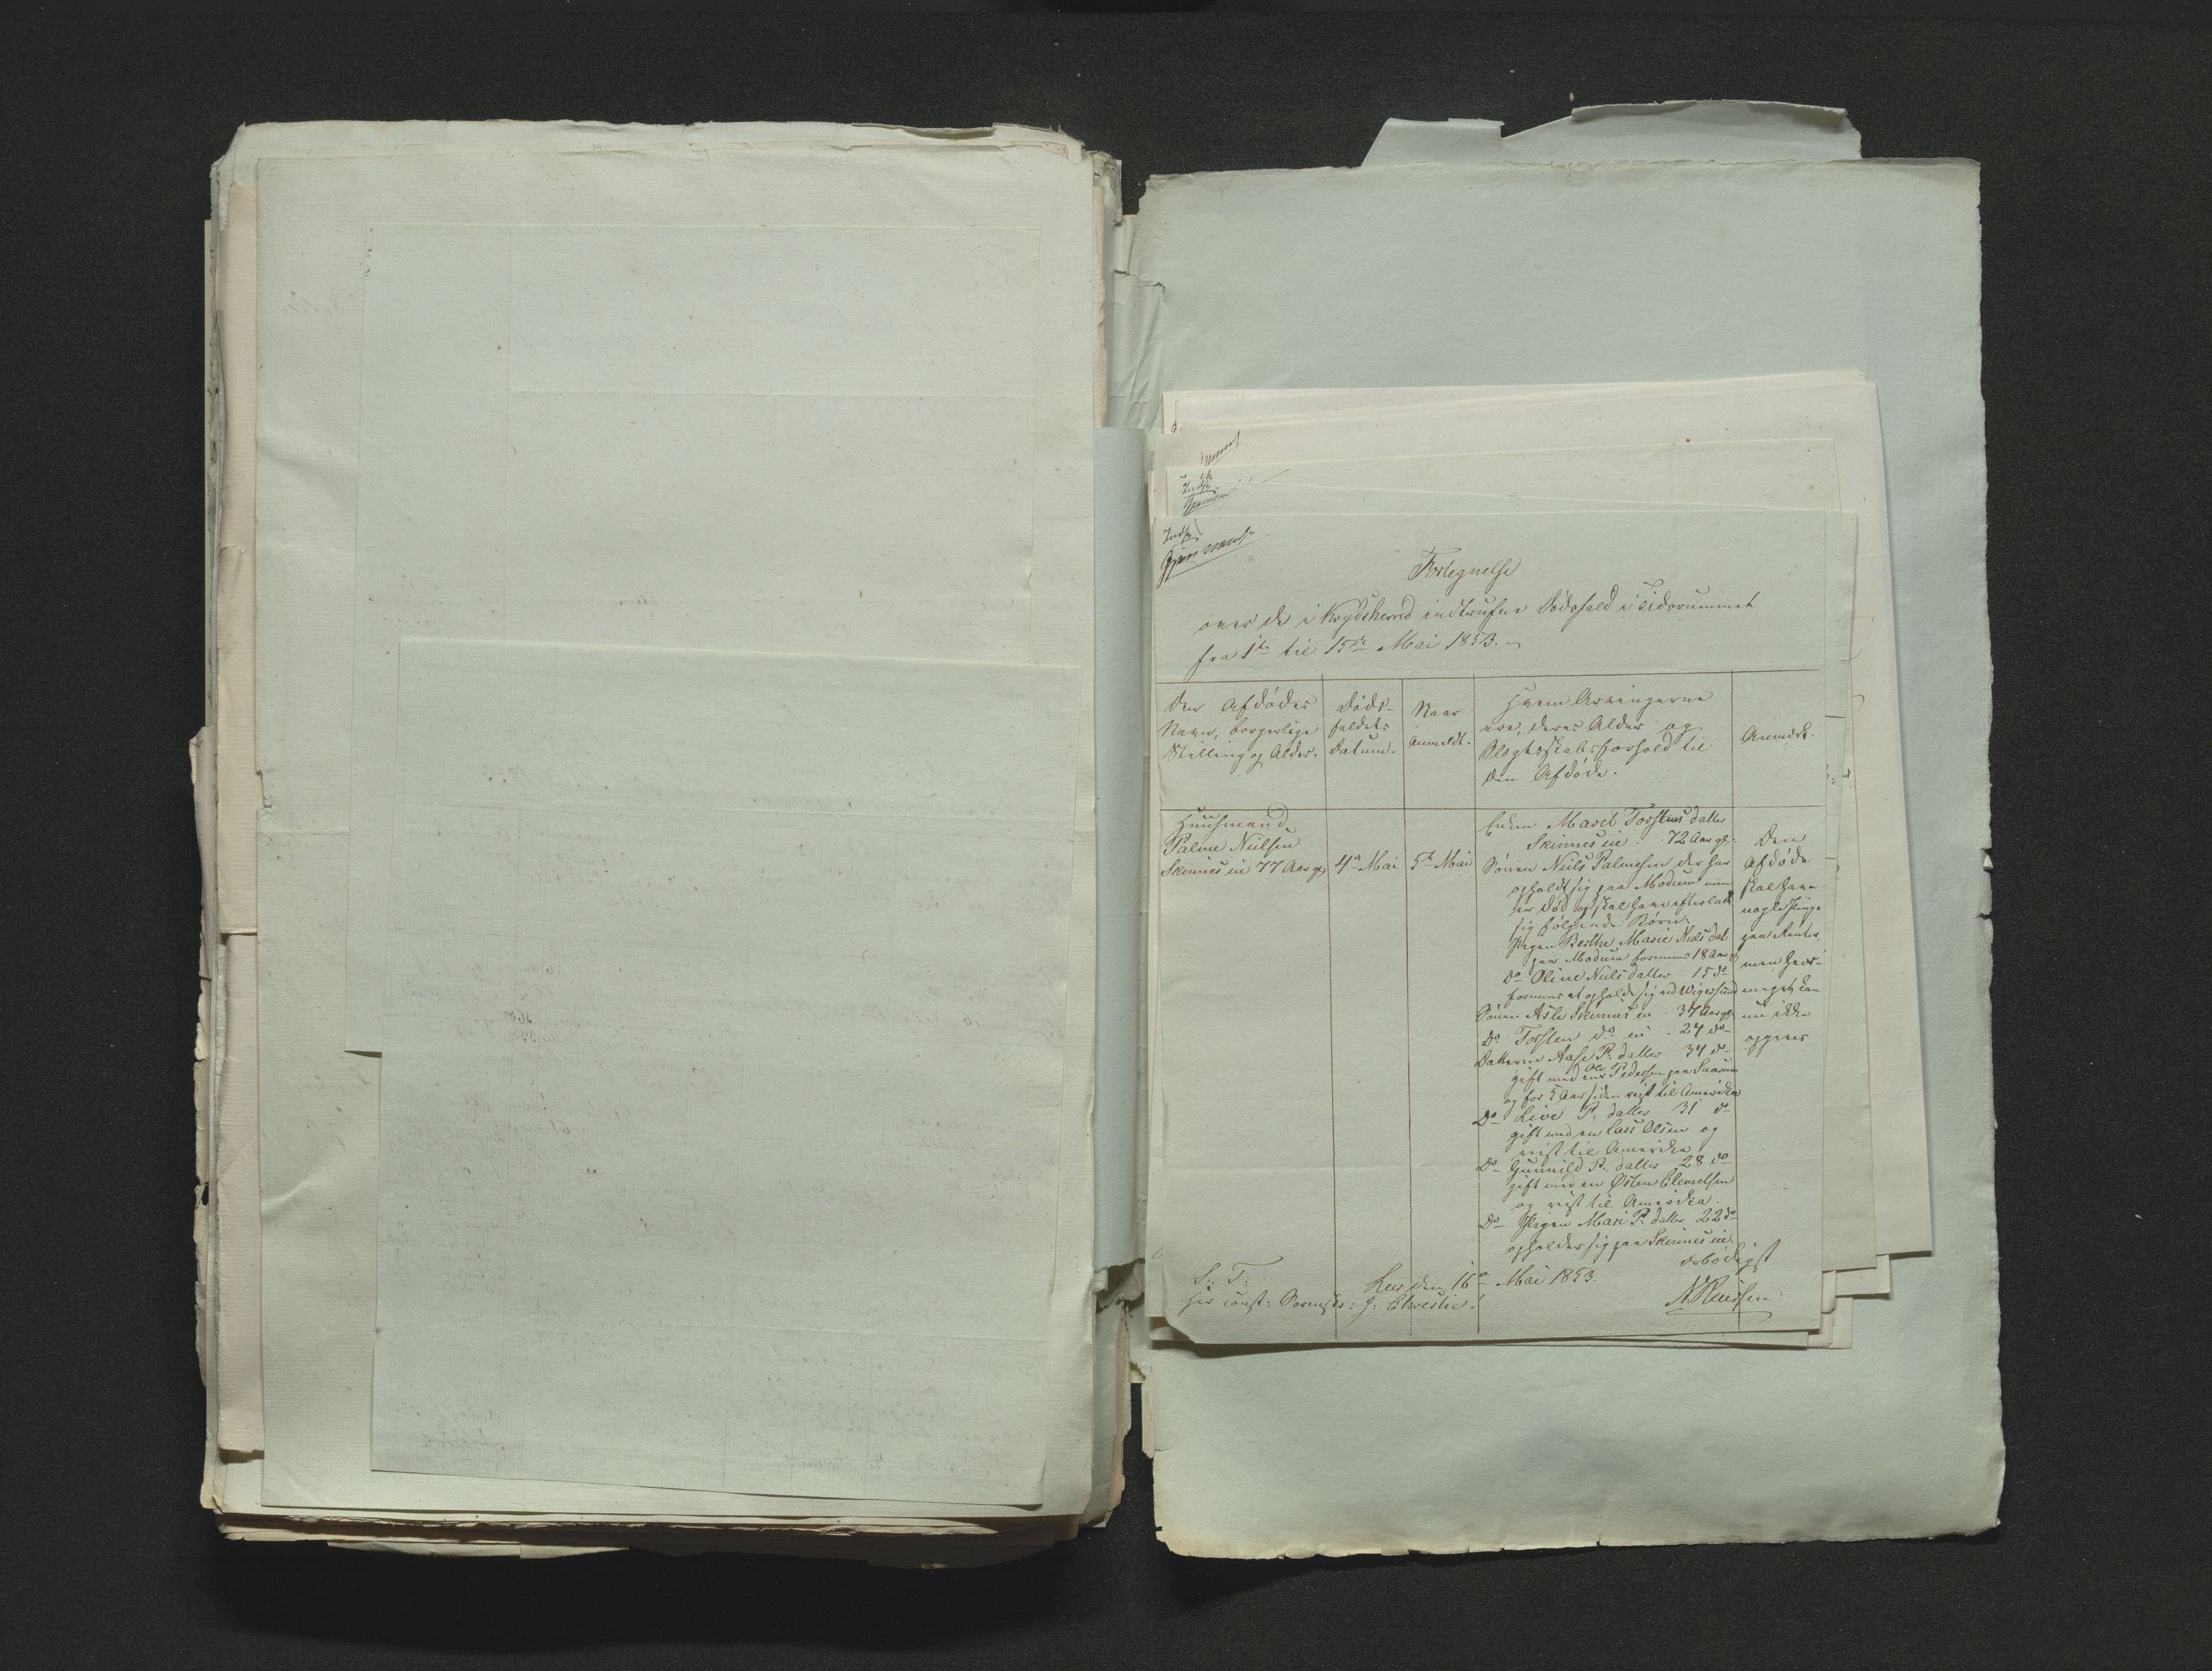 Indf.
Fortegnelse
over de i Krydsherred indtrufne Dødsfald i Tidsrummet
fra 1ste til 15de Mai 1853.
Den Afdødes
Navn, borgerlige
Stilling og Alder.
Døds-
faldets
Datum.
Naar
anmeldt.
Hvem Arvingerne
ere, deres Alder og
Slægtskabsforhold til
den Afdøde.
Anmærk.
Huusmand
Palme Nielsen
Skinnes eie 77 Aar gl.
4de Mai
5te Mai
Enken Marit Torstensdatter
Skinnes eie 72 Aar gl.
Sønnen Niels Palmesen der har
opholdt sig paa Modum men
er død og skal have efterladt
sig følgende Børn:
Pigen Berthe Marie Nielsdat.
paa Modum formenes 18 Aar gl
do Oline Nielsdatter 15 do
formenes at opholde sig ved Wigersund
Sønnen Asle Skinnes eie 37 Aar gl
Do Torsten do eie 24 do
Datteren Aase P. datter 34 do
gift med en Ole Pedersen paa Snarum
og for 5 Aar siden reist til Amerika
Do Live P. datter 31 do
gift med en Lars Olsen og
reist til Amerika
Do Gunnild P. datter 28 do
gift med en Østen Clemetsen
og reist til Amerika.
Do Pigen Mari P. datter 22 do
opholder sig paa Skinnes eie.
Den
Afdøde
skal have
nogle Penge
paa Renter,
men hvor-
meget kan
nu ikke
opgives
ærbødigst
Leer den 16de Mai 1853.
S. T.
Hr const: Sorenskr: J: Christie!